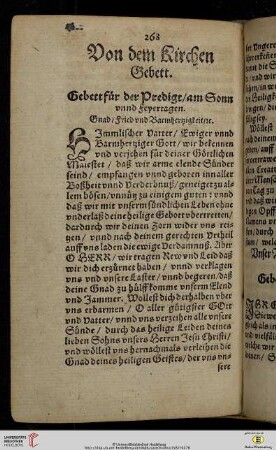 268
Von dem Kirchen
Gebett.
Gebett für der Predigt / am Sonn
vnnd Feyertagen.
Gnad / Fried vnd Barmhertzigkeit etc.
HJmmlischer Vatter / Ewiger vnnd
Barmhertziger Gott / wir bekennen
vnd verjehen für deiner Göttlichen
Maiestet / daß wir arme elende Sünder
seind / empfangen vnnd geboren inn aller
Boßheit vnnd Verderbnuß / geneiget zu al
lem bösen / vnnütz zu einigem guten : vnnd
daß wir mit vnserm sündlichen Leben ohne
vnderlaß deine heilige Gebott vbertretten /
dardurch wir deinen Zorn wider vns reit
zen / vnnd nach deinem gerechten Vrtheil
auff vns laden die ewige Verdamnuß. Aber
O HERR / wir tragen Rew vnd Leid daß
wir dich erzürnet haben / vnnd verklagen
vns vnd vnsere Laster / vnnd begeren / daß
deine Gnad zu hülff komme vnserm Elend
vnd Jammer. Wöllest dich derhalben vber
vns erbarmen / O aller gütigster GOtt
vnd Vatter / vnnd vns verzeihen alle vnsere
Sünde / durch das heilige Leiden deines
lieben Sohns vnsers Herren Jesu Christi /
vnd wöllest vns hernachmals verleihen die
Gnad deines heiligen Geistes / der vns vn-
sere